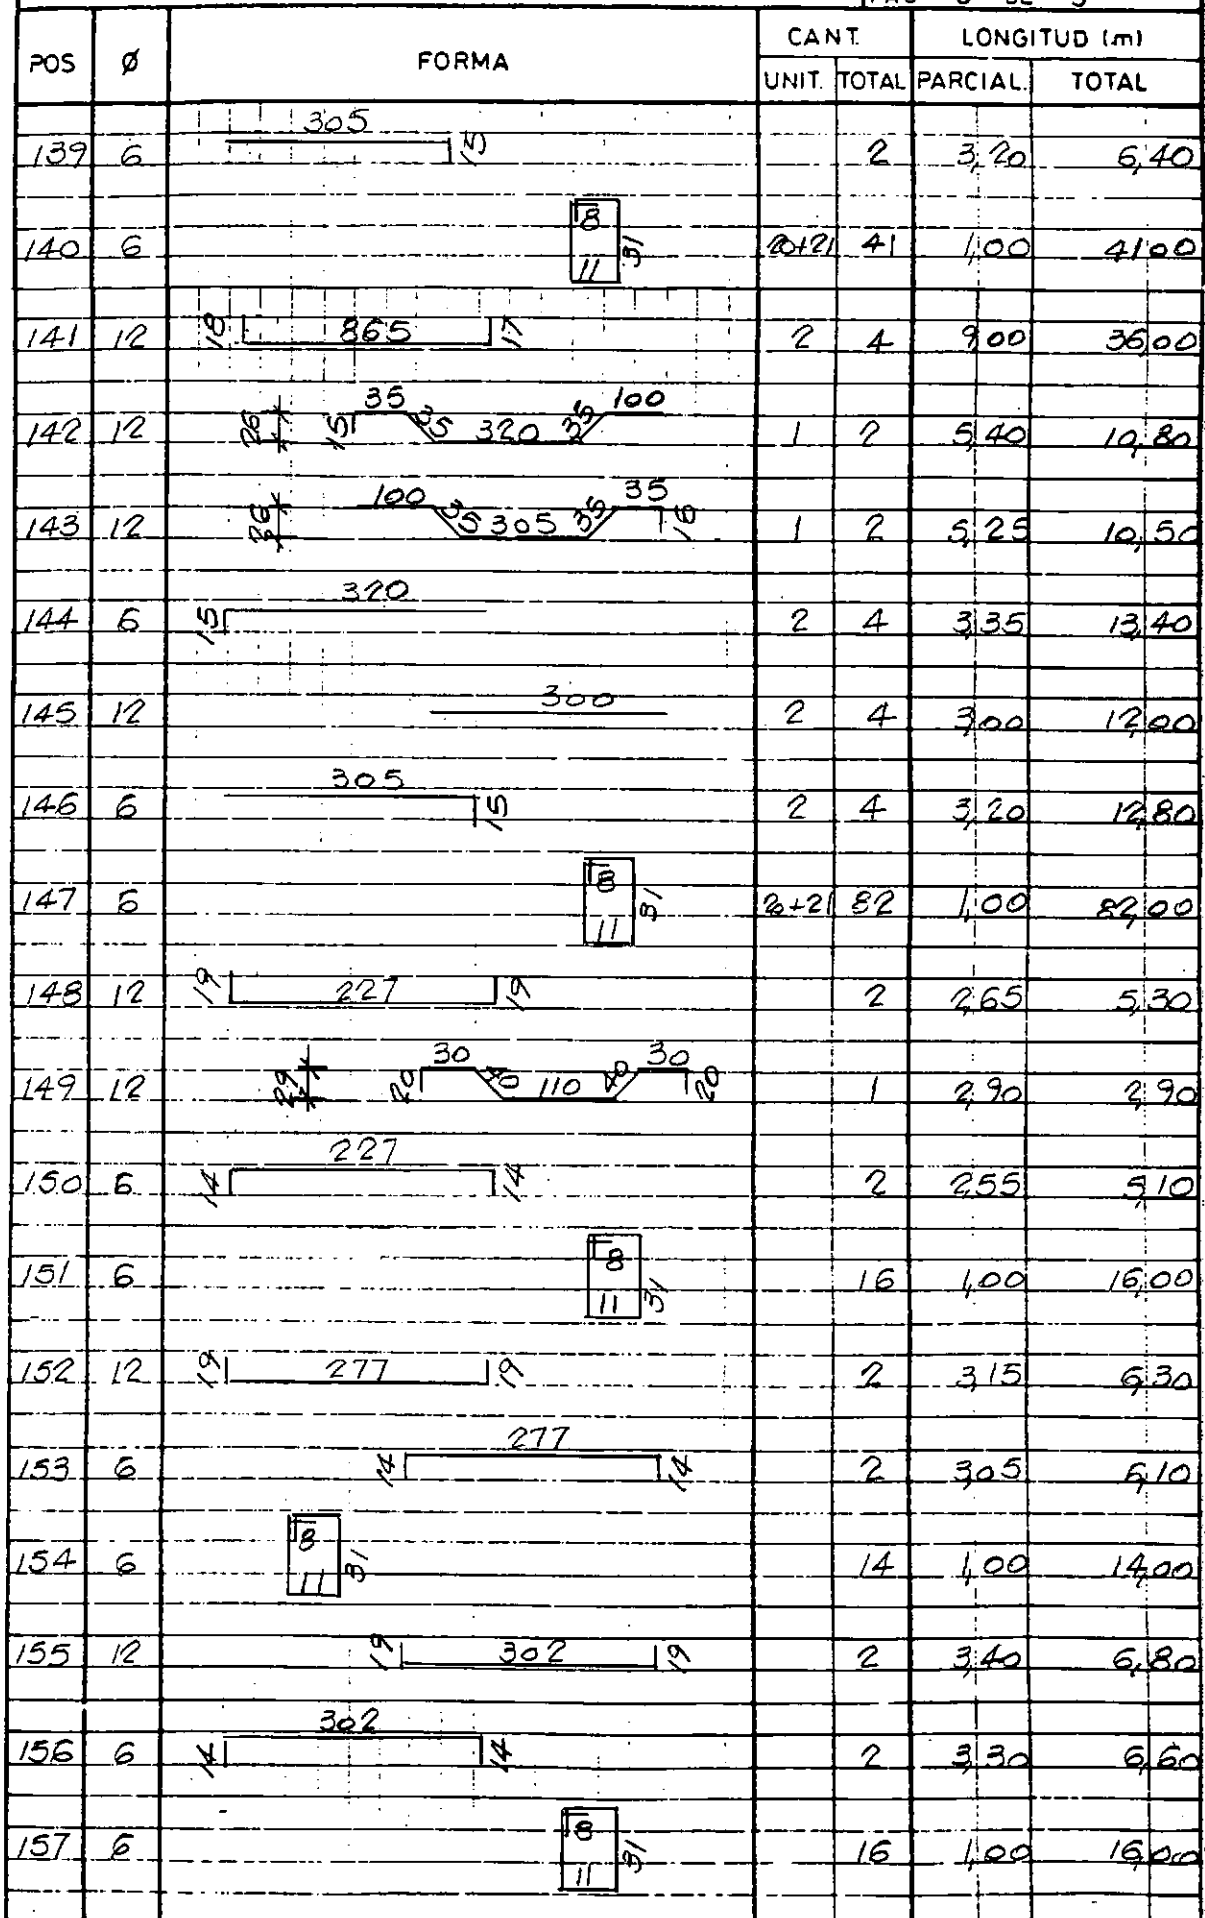 POS Ø FORMA CANT. LONGITUD (m)
UNIT. TOTAL PARCIAL. TOTAL
139 6 305 15 2 3,20 6,40
140 6 8 11 31 20+21 41 1,00 41,00
141 12 18 865 17 2 4 9,00 36,00
142 12 26 15 35 35 320 35 100 1 2 5,40 10,80
143 12 26 100 35 305 35 35 16 1 2 5,25 10,50
144 6 15 320 2 4 3,35 13,40
145 12 300 2 4 3,00 12,00
146 6 305 15 2 4 3,20 12,80
147 6 8 11 31 20+21 82 1,00 82,00
148 12 19 227 19 2 2,65 5,30
149 12 29 20 30 40 110 40 30 20 1 2,90 2,90
150 6 14 227 14 2 2,55 5,10
151 6 8 11 31 16 1,00 16,00
152 12 19 277 19 2 3,15 6,30
153 6 14 277 14 2 3,05 6,10
154 6 8 11 31 14 1,00 14,00
155 12 19 302 19 2 3,40 6,80
156 6 14 302 14 2 3,30 6,60
157 6 8 11 31 16 1,00 16,00